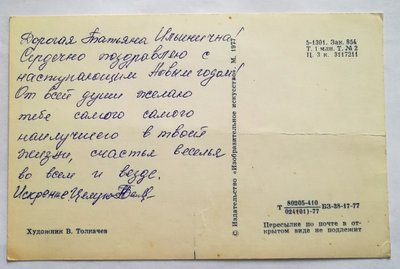 Дорогая Татьяна Ильинична!
Сердечно поздравляю с
наступающим Новым годом!
От всей души желаю
тебе самого самого
наилучшего в твоей
жизни, счастья веселья
во всем и везде.
Искренне Целую
Художник В. Толкачев
© Издательство «Изобразительное искусство». М. 1977
5-1301. Зак. 854
Т. 1 млн. Т. № 2
Ц. 3 к. 3117211
Т 80205-410 БЗ-38-17-77
024(01)-77
Пересылке по почте в от-
крытом виде не подлежит